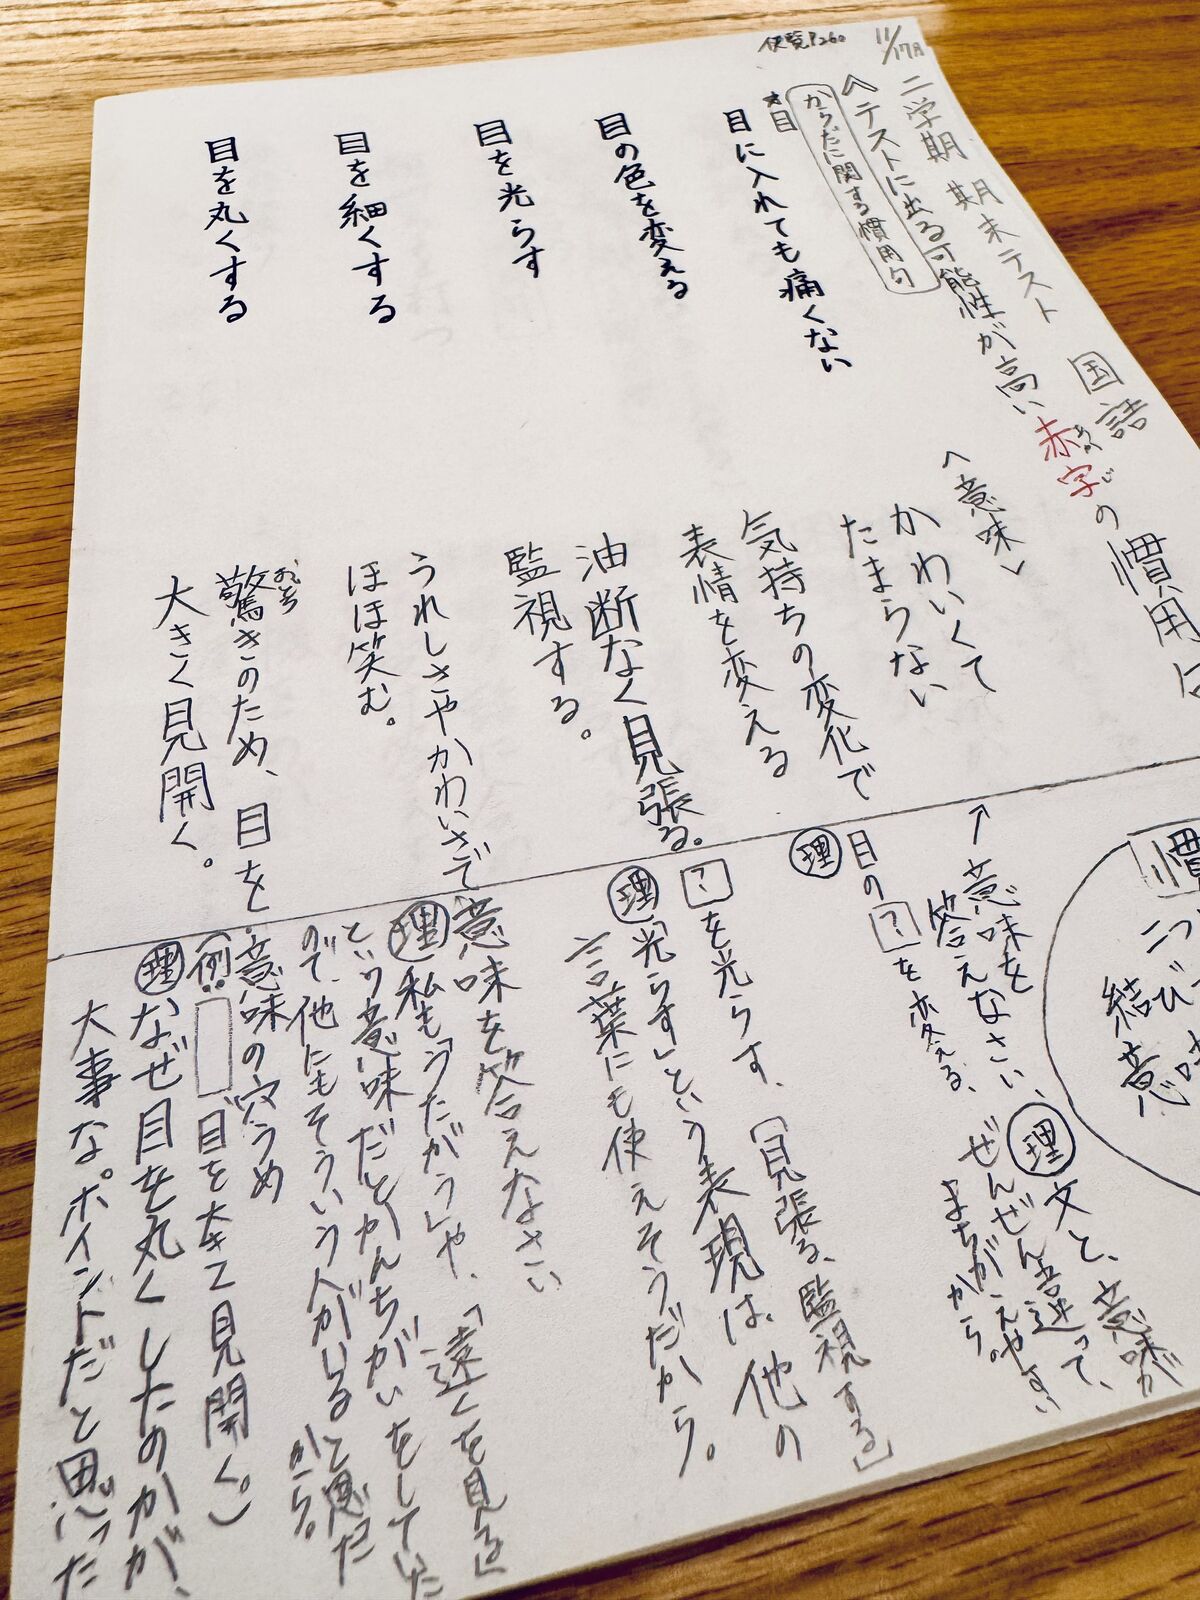 便覧P260
11/17月
二学期 期末テスト 国語
〈テストに出る可能性が高い赤字の慣用句
あか じ
からだに関する慣用句
*目
目に入れても痛くない
目の色を変える
目を光らす
目を細くする
目を丸くする
〈意味〉
かわいくて
たまらない
気持ちの変化で
表情を変える
油断なく見張る。
監視する。
うれしさやかわいさで
ほほ笑む。
おどろ
驚きのため、目を
大きく見開く。
慣
二つ
結び
意味
意
↑意味を
答えなさい、
理 文と、意味が
ぜんぜん違って、
まちがえやすい
から。
目の[?]を変える、
理
[?]を光らす、「見張る、監視する」
理「光らす」という表現は、他の
言葉にも使えそうだから。
↑意味を答えなさい
理 私も「うたがう」や、「遠くを見る」
という意味だとかんちがいをしていた
ので、他にもそういう人がいると思った
から。
意味の穴うめ
(例:: 目を大きく見開く。)
理 なぜ目を丸くしたのかが、
大事な。ポイントだと思った